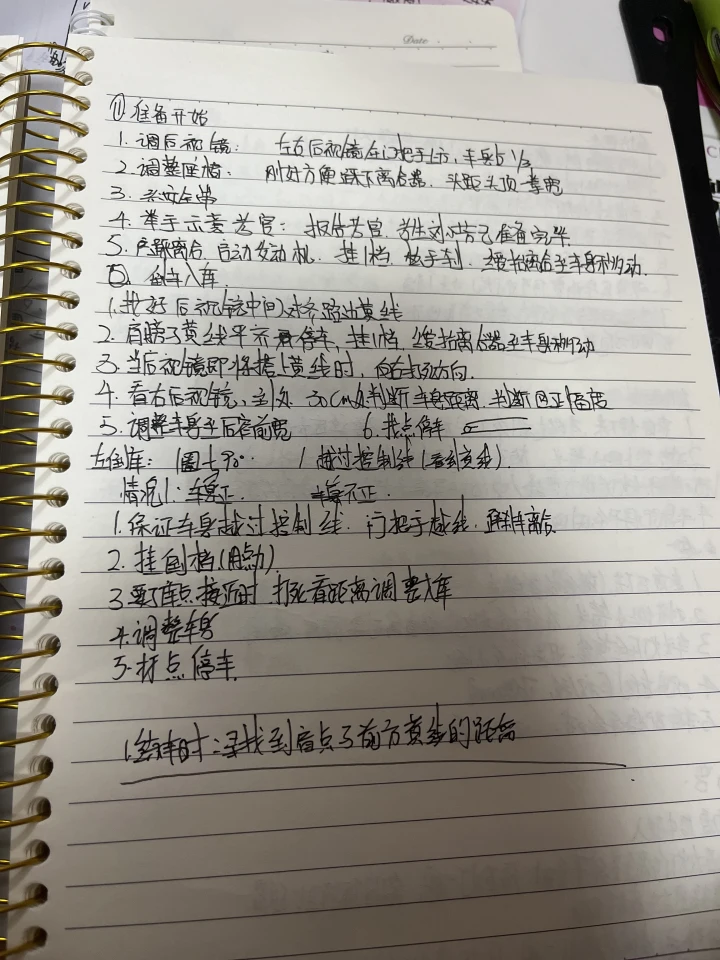 Date
(1) 准备开始
1. 调后视镜: 左右后视镜在门把手上方, 车身占 1/3
2. 调整座椅. 刚好方便踩下离合器. 头距头顶一拳宽
3. 系安全带
4. 举手示意考官: 报告考官, 学生 已准备完毕
5. 踩离合. 启动发动机. 挂1档. 松手刹. 缓抬离合至车身移动.
倒车入库.
1. 找好后视镜中间对齐路边黄线
2. 肩膀与黄线平齐 停车, 挂1档, 缓抬离合器至车身移动
3. 当后视镜即将 上黄线时, 向右打死方向.
4. 看右后视镜, 到 30cm处判断车身距离. 判断回正幅度
5. 调整车身至后窄前宽 6. 找点停车
左倒库: 1圈 90° 1 越过控制线(看到黄线).
情况1: 车身正. 车身不正.
1. 保证车身越过控制线. 门把手越线. 离合
2. 挂倒档. (用点动)
3. 库点接近时 打死看距离调整入库
4. 调整车身
5. 找点停车.
1. 结束时: 寻找到盲点与前方黄线的距离